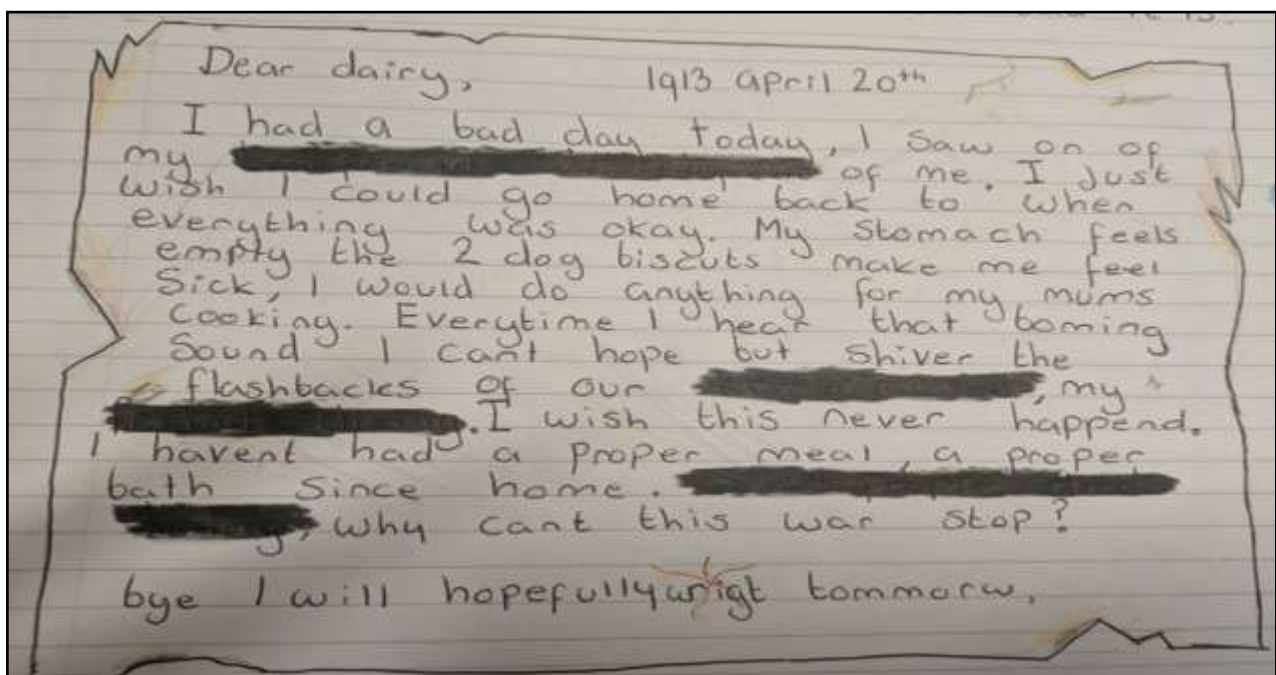 Dear dairy, 1913 april 20th
I had a bad day today, I saw on of
my of me. I Just
wish I could go home back to when
everything was okay. My stomach feels
empty the 2 dog biscuts make me feel
Sick, I would do anything for my mums
Cooking. Everytime I hear that boming
Sound I cant hope but shiver the
flashbacks of our , my
. I wish this never happend.
I havent had a proper meal, a proper
bath Since home.
, why cant this war stop?
bye I will hopefully wrigt tommorw.